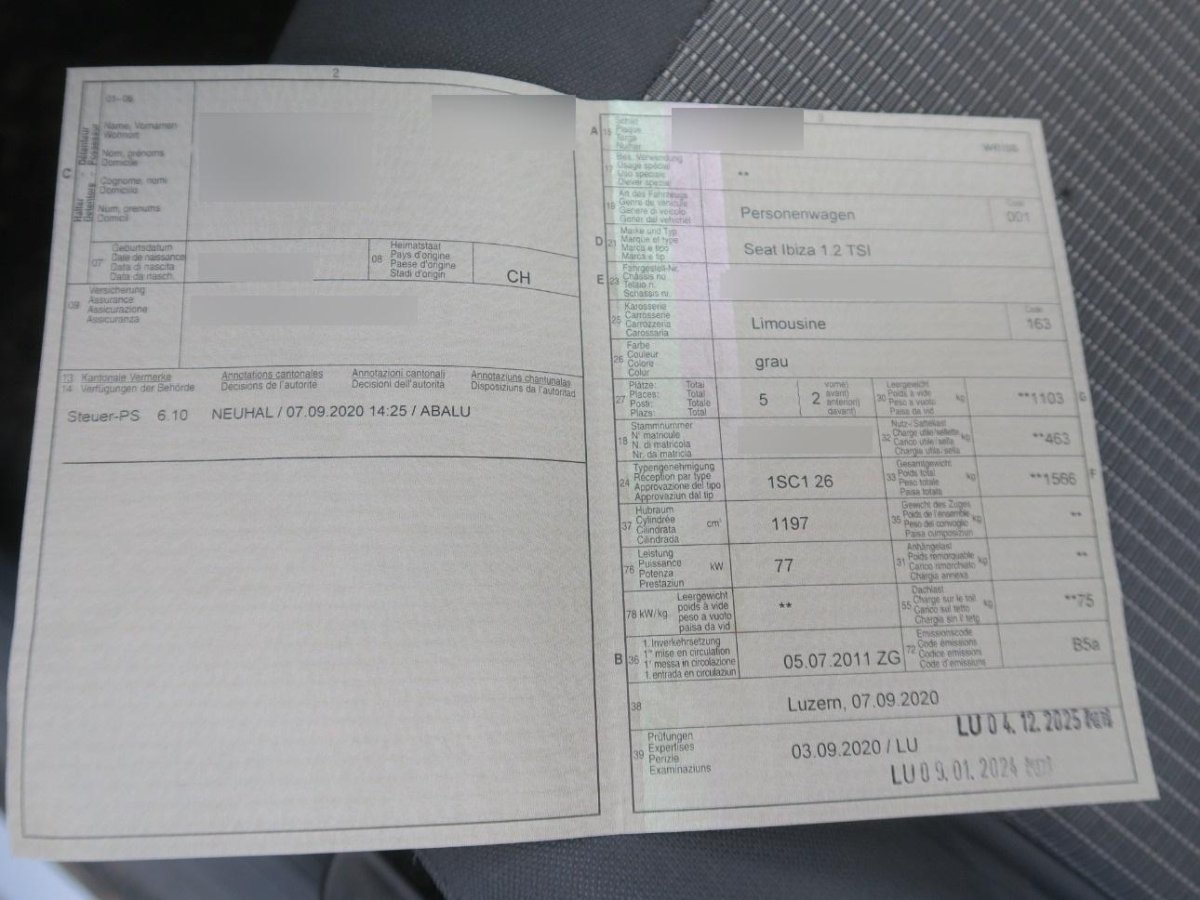 2
01-06
Name, Vornamen
Wohnort
Nom, prénoms
Domicile
Cognome, nomi
Domicilio
Num, prenums
Domicil
C
Halter Détenteur
Detentore Possessur
07
Geburtsdatum
Date de naissance
Data di nascita
Data da nasch.
08
Heimatstaat
Pays d'origine
Paese d'origine
Stadi d'origin
CH
09
Versicherung
Assurance
Assicurazione
Assicuranza
13 Kantonale Vermerke Annotations cantonales Annotazioni cantonali Annotaziuns chantunalas
14 Verfügungen der Behörde Décisions de l'autorité Decisioni dell'autorità Disposiziuns da l'autoritad
Steuer-PS 6.10 NEUHAL / 07.09.2020 14:25 / ABALU
3
A 15
Schild
Plaque
Targa
Numer
weiss
17
Bes. Verwendung
Usage spécial
Uso speciale
Diever spezial
**
19
Art des Fahrzeugs
Genre de véhicule
Genere di veicolo
Gener dal vehichel
Personenwagen
Code
001
D 21
Marke und Typ
Marque et type
Marca e tipo
Marca e tip
Seat Ibiza 1.2 TSI
E 23
Fahrgestell-Nr.
Châssis no
Telaio n.
Schassis nr.
25
Karosserie
Carrosserie
Carrozzeria
Carossaria
Limousine
Code
163
26
Farbe
Couleur
Colore
Colur
grau
27
Plätze: Total
Places: Total
Posti: Totale
Plazs: Total
5
2
vorne)
avant)
anteriori)
davant)
30
Leergewicht
Poids à vide
Peso a vuoto
Paisa da vid
kg
**1103
G
18
Stammnummer
N° matricule
N. di matricola
Nr. da matricla
32
Nutz-/Sattellast
Charge utile/sellette
Carico utile/sella
Chargia utila/sella
kg
**463
24
Typengenehmigung
Réception par type
Approvazione del tipo
Approvaziun dal tip
1SC1 26
33
Gesamtgewicht
Poids total
Peso totale
Paisa totala
kg
**1566
F
37
Hubraum
Cylindrée
Cilindrata
Cilindrada
cm³
1197
35
Gewicht des Zuges
Poids de l'ensemble
Peso del convoglio
Paisa cumposiziun
kg
**
76
Leistung
Puissance
Potenza
Prestaziun
kW
77
31
Anhängelast
Poids remorquable
Carico rimorchiato
Chargia annexa
kg
**
78 kW/kg
Leergewicht
poids à vide
peso a vuoto
paisa da vid
**
55
Dachlast
Charge sur le toit
Carico sul tetto
Chargia sin il tetg
kg
**75
B 36
1. Inverkehrsetzung
1re mise en circulation
1a messa in circolazione
1. entrada en circulaziun
05.07.2011 ZG
72
Emissionscode
Code émissions
Codice emissioni
Code d'emissiuns
B5a
38
Luzern, 07.09.2020
39
Prüfungen
Expertises
Perizie
Examinaziuns
03.09.2020 / LU
LU 0 4. 12. 2025
LU 0 9. 01. 2024